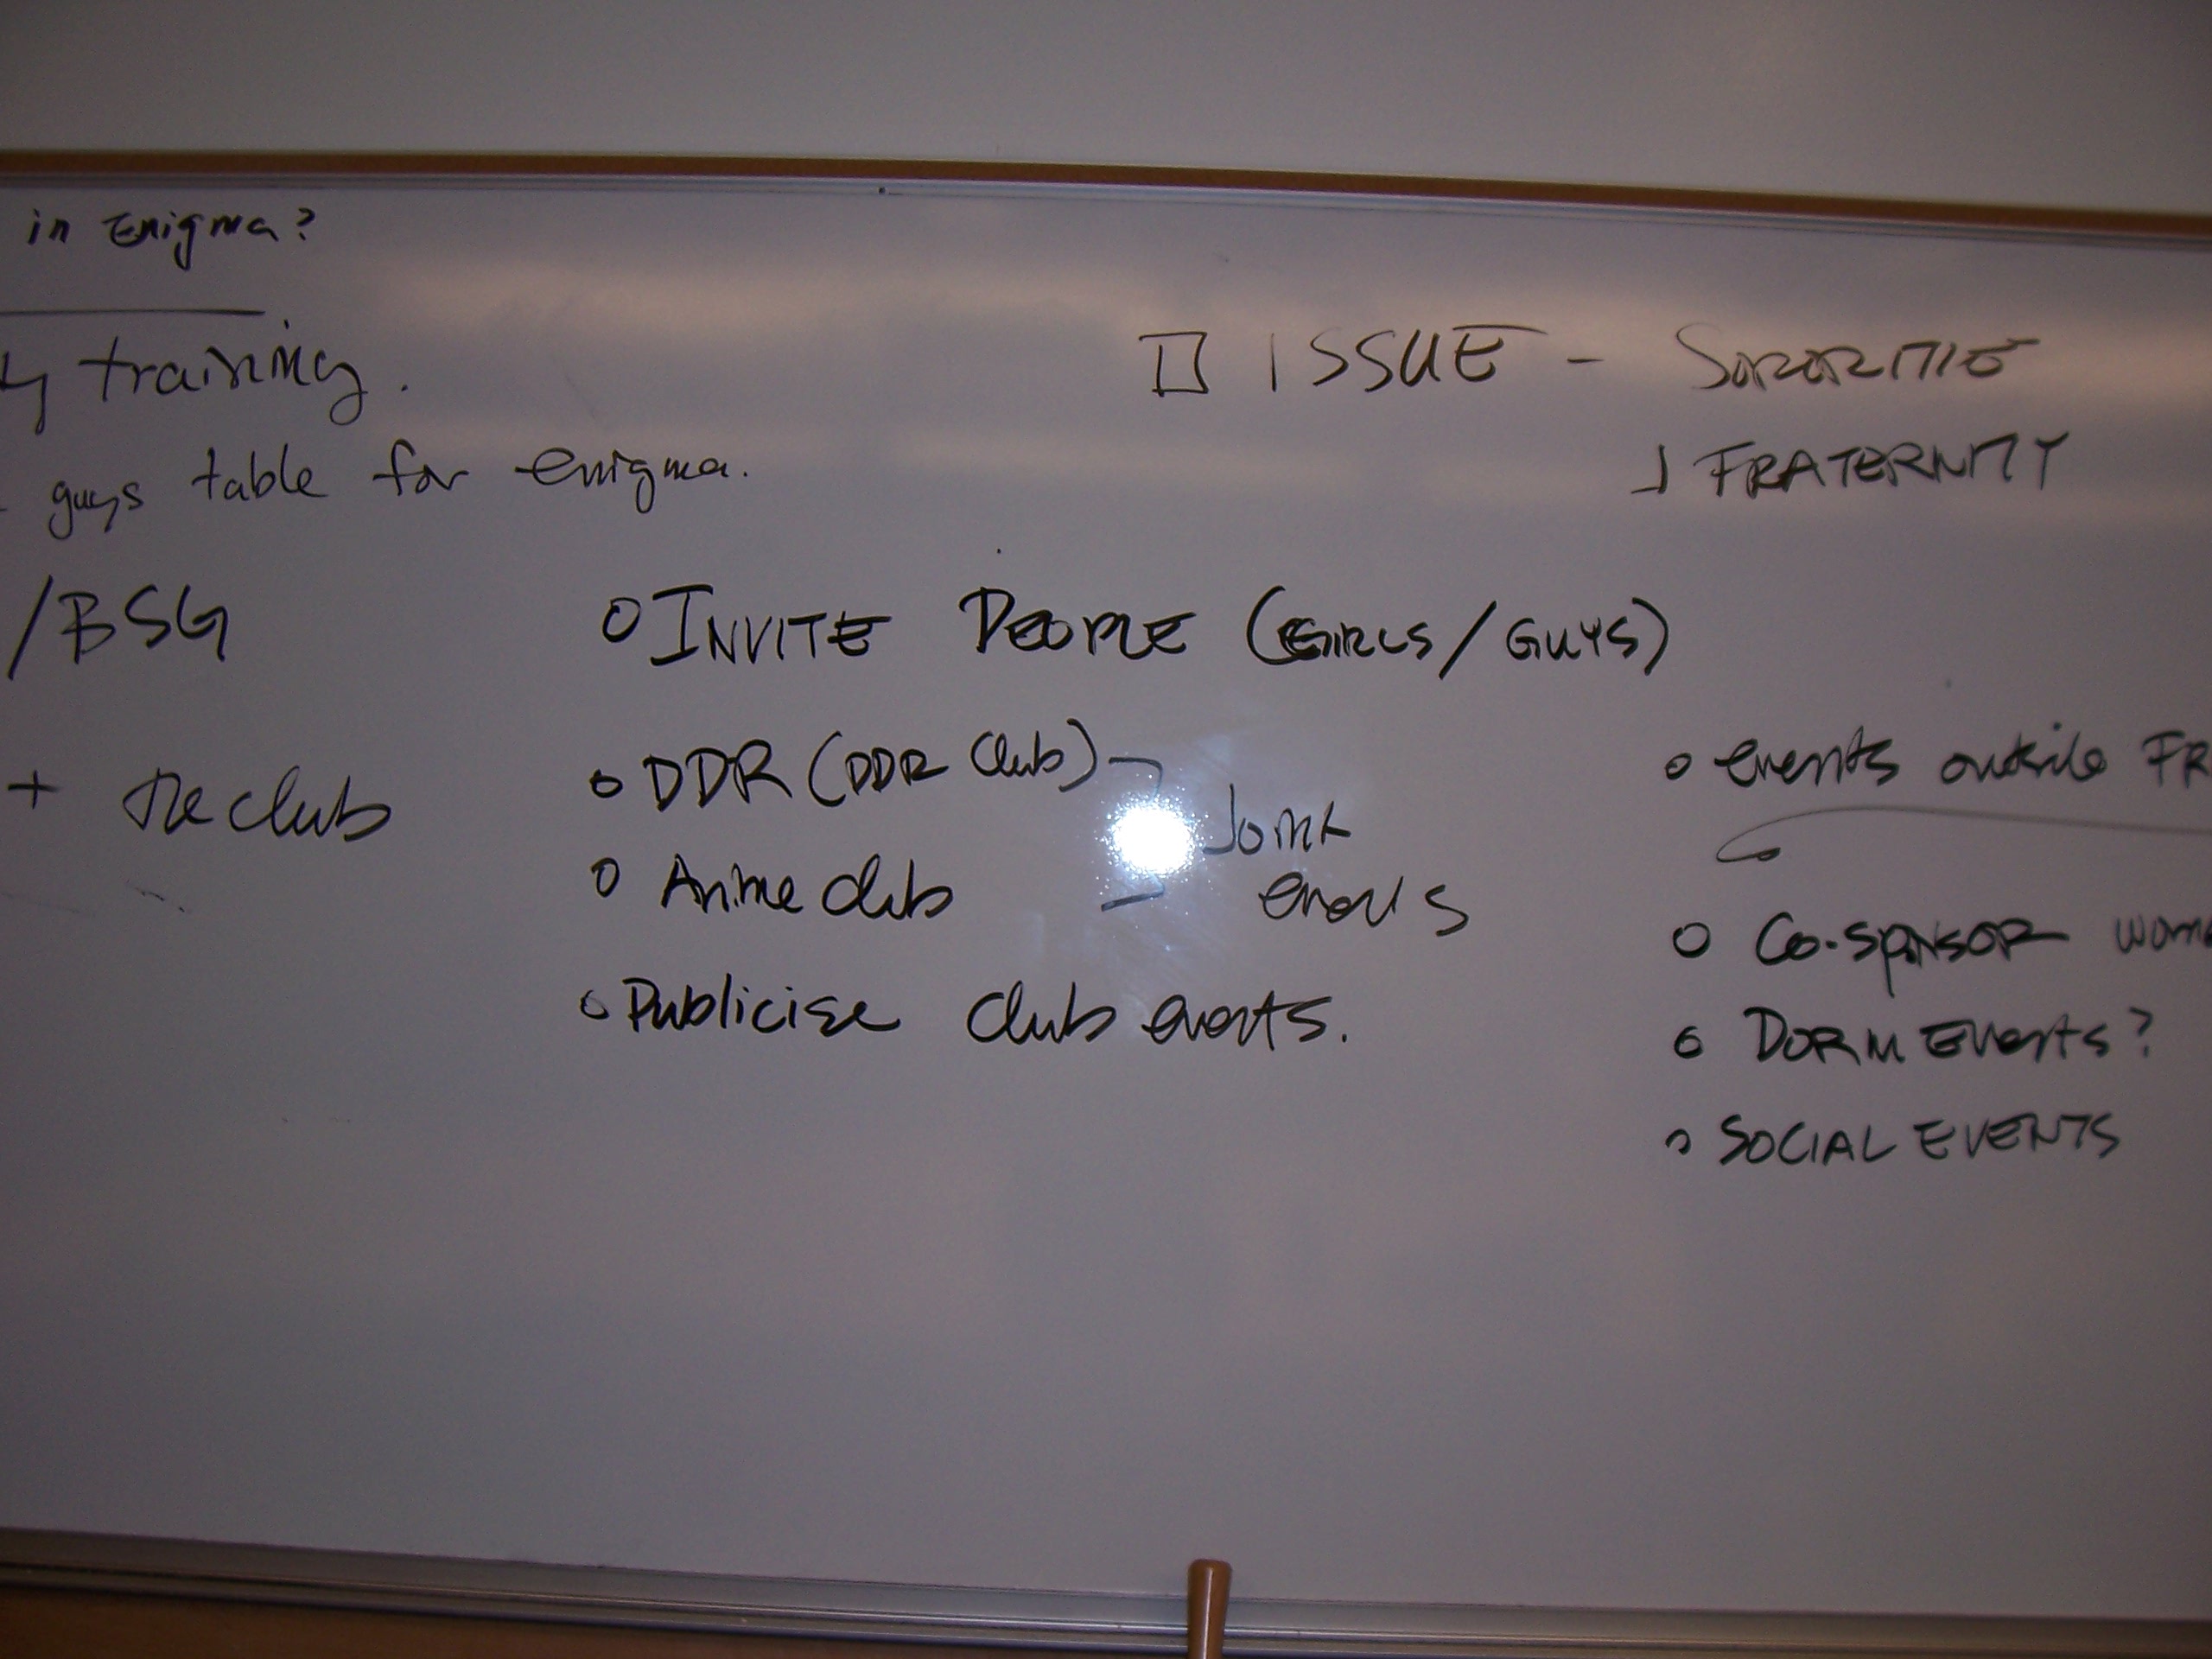 in Enigma?
training.
guys table for enigma.
/BSG
+ the club
□ ISSUE - SORORITIE
FRATERNITY
o INVITE PEOPLE (GIRLS/GUYS)
o DDR (DDR Club)
o Anime club
Joint
events
o Publicise club events.
o events outside FR
o Co-sponsor wom
o DORM Events?
o SOCIAL EVENTS